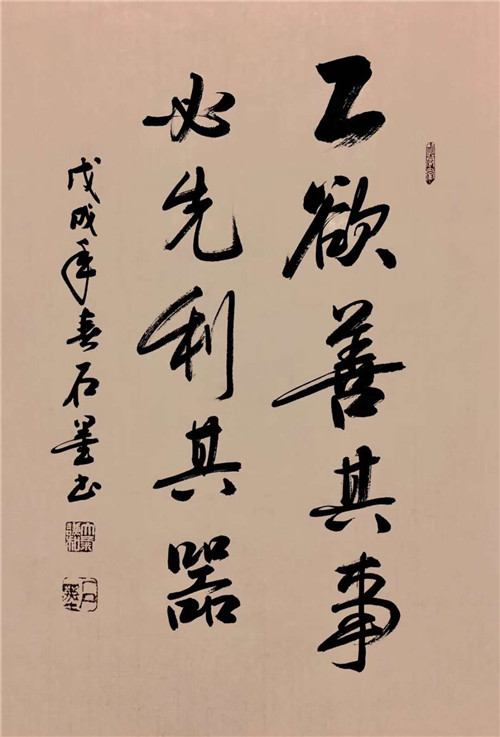 工欲善其事
必先利其器
戊戌年春石墨书